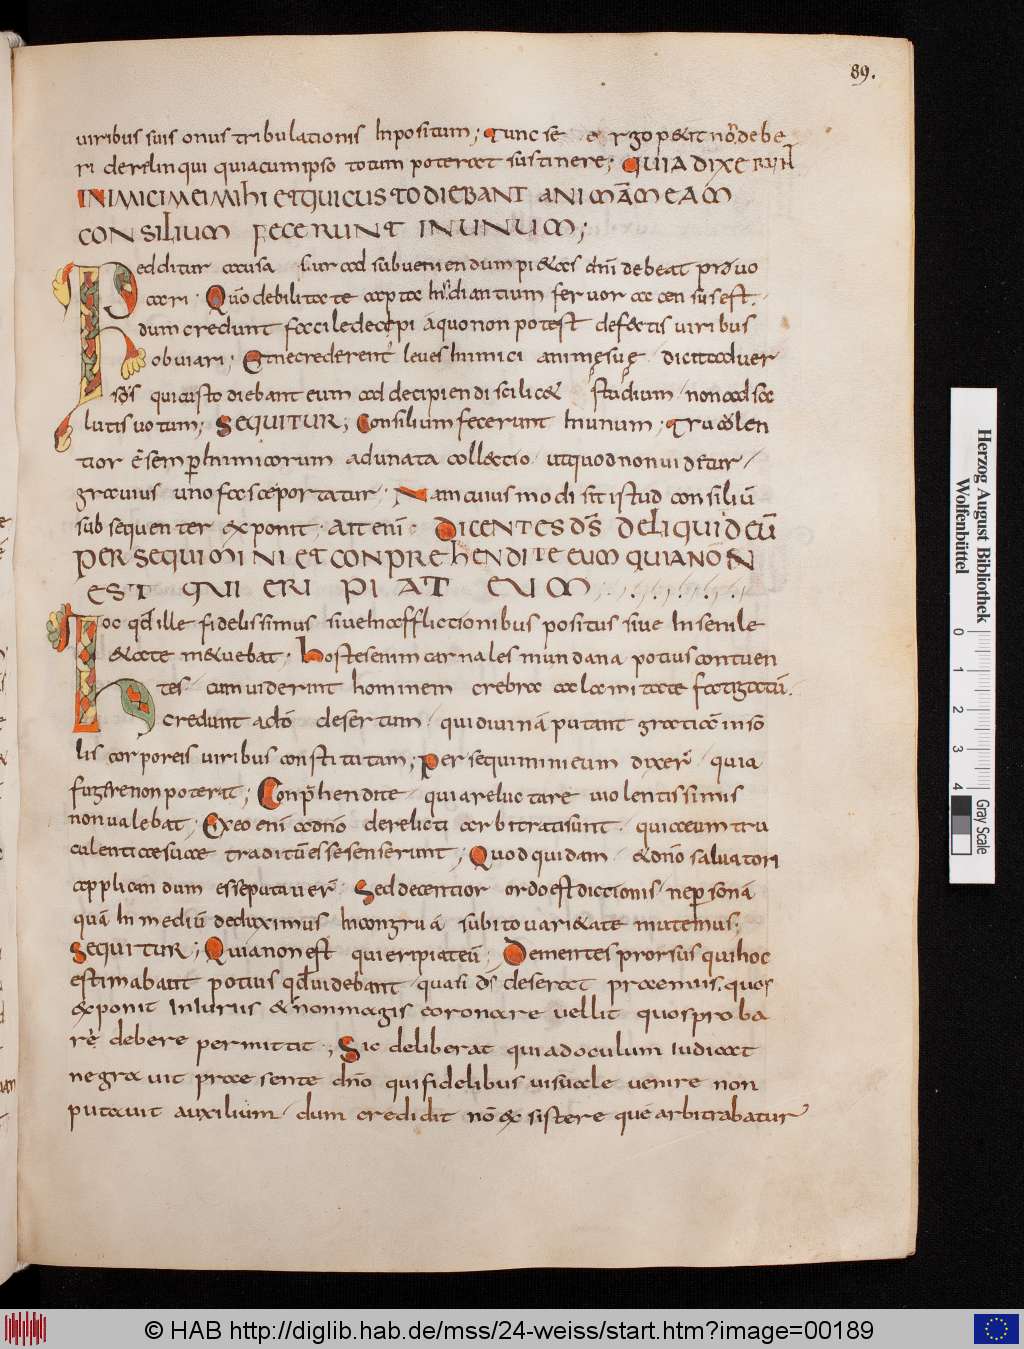 89.
uiribus suis onus tribulationis Inpositum; Tunc sē ergo p&it nō debe
ri derelinqui quiacumipso totum poterat sustinere; QUIA DIXERUNT
INIMICI MEI MIHI ET QUI CUSTODIEBANT ANIMĀ MEAM
CONSILIUM FECERUNT IN UNUM;
Redditur causa cur ad subueniendum pi&as dn̄i debeat prouo
cari. Qūo debilitate capta Insidiantium feruor accensus est.
dum credunt facile decepi aquo non potest defectis uiribus
obuiari; Et ne crederent leues Inimici animę suę dicit aduer
sos qui custodiebant eum ad decipiendi scilic& studium non ad sa
lutis uotum; SEQUITUR; Consilium fecerunt In unum; Truculen
tior ē semper Inimicorum adunata collectio ut quod non uidetur
grauius uno fasce portatur; Nam cuius modi sit istud consiliū
subsequenter exponit. Ait enī. DICENTES DS̄ DELIQUID EŪ
PERSEQUIMINI ET CONPREHENDITE EUM QUIA NON
EST QUI ERIPIAT EUM
Hoc qđ ille fidelissimus siue In afflictionibus positus siue In senile
&ate m&uebat. Hostes enim carnales mundana potius contuen
tes cum uiderint hominem crebra calamitate fatigatū.
credunt adō desertum qui diuinā putant gratiā in so
lis corporeis uiribus constitutam; Persequimini eum dixer̄ quia
fugere non poterat; Conp̄hendite quia reluctare uiolentissimis
non ualebat; Ex eo enī a dn̄o derelicti arbitrati sunt. quia eum tru
culentiae suae traditū esse senserunt; Quod quidam & dn̄o saluatori
applicandum esse putauer̄. Sed decentior ordo est dictionis ne personā
quā In mediū deduximus Incongruā subito uari&ate mutemus;
SEQUITUR; Quia non est qui eripiat eū; Dementes prorsus qui hoc
estimabant potius qđ uidebant quasi ds̄ deserat praemus. quos
exponit Iniuriis & n̄ magis coronare uellit quos proba
re debere permittit; Sic deliberat qui ad oculum iudicat
negauit praesente dn̄o qui fidelibus uisuale uenire non
putauit auxilium dum credidit nō existere que arbitrabatur
Herzog August Bibliothek
Wolfenbüttel
0 1 2 3 4
Gray Scale
© HAB http://diglib.hab.de/mss/24-weiss/start.htm?image=00189